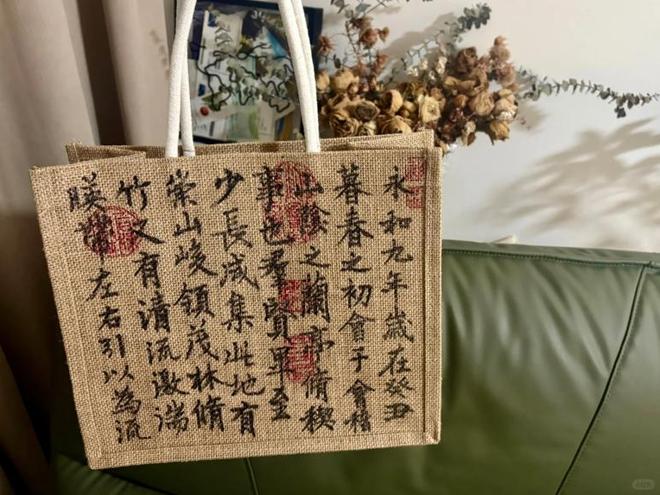 永和九年歲在癸丑
暮春之初會于會稽
山陰之蘭亭脩稧
事也羣賢畢至
少長咸集此地有
崇山峻領茂林脩
竹又有清流激湍
暎帶左右引以為流